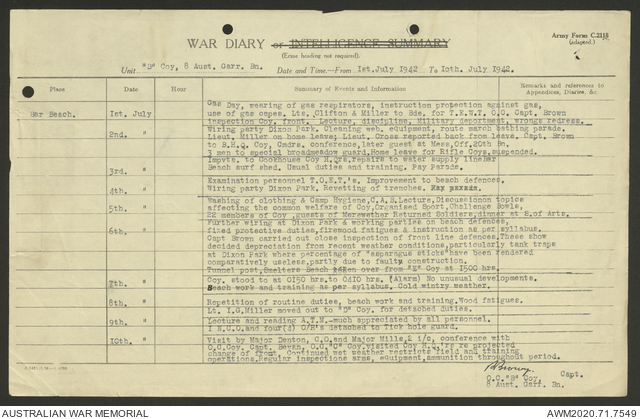 Army Form C.2118
(adapted.)
WAR DIARY or INTELLIGENCE SUMMARY
(Erase heading not required).
Unit "B" Coy, 8 Aust. Garr. Bn. Date and Time—From 1st.July 1942 To 10th. July 1942.
Place Date Hour Summary of Events and Information Remarks and references to Appendices, Diaries, &c.
Bar Beach. 1st. July Gas Day, wearing of gas respirators, instruction protection against gas,
use of gas capes. Lts. Clifton & Miller to Bde. for T.E.W.T. O.C. Capt. Brown
inspection Coy. front. Lecture, discipline, Military deportment, wrongs redress.
2nd. " Wiring party Dixon Park. Cleaning web, equipment, route march bathing parade.
Lieut. Miller on home leave; Lieut. Cross reported back from leave. Capt. Brown
to B.H.Q. Coy. Cmdrs. conference, later guest at Mess, Off. 20th Bn.
3 men to special broadmeadow guard. Home leave for Rifle Coys. suspended.
3rd. " Impvts. to Cookhouse Coy H.Qrs, repairs to water supply line Bar
Beach surf shed. Usual duties and training. Pay Parade.
4th. " Examination personnel T.O.E.T.'s. Improvement to beach defences.
Wiring party Dixon Park. Revetting of trenches.
5th. " Washing of clothing & Camp Hygiene, C.A.S. Lecture, Discussion on topics
affecting the common welfare of Coy, Organised Sport, Challenge Bowls,
22 members of Coy guests of Merewether Returned Soldiers, dinner at S. of Arts.
6th. " Further wiring at Dixon Park & working parties on beach defences,
fixed protective duties, firewood fatigues & instruction as per syllabus.
Capt Brown carried out close inspection of front line defences. These show
decided depreciation from recent weather conditions, particularly tank traps
at Dixon Park where percentage of "asparagus sticks" have been rendered
comparatively useless, partly due to faulty construction.
Tunnel post, Smelters Beach taken over from "E" Coy at 1500 hrs.
7th. " Coy. stood to at 0150 hrs. to 0410 hrs. (Alarm) No unusual developments.
Beach work and training as per syllabus. Cold wintry weather.
8th. " Repetition of routine duties, beach work and training. Wood fatigues.
Lt. I.G. Miller moved out to "D" Coy. for detached duties.
9th. " Lecture and reading A.T.M.-much appreciated by all personnel.
1 N.C.O. and four(4) O/R's detached to Tick hole guard.
10th. " Visit by Major Denton, C.O. and Major Mills, 2 i/c, conference with
O.C. Coy. Capt. Bevan, O.C. "C" Coy. visited Coy H.Q.'rs re projected
change of front. Continued wet weather restricts field and training
operations. Regular inspections arms, equipment, ammunition throughout period.
Capt.
O.C. "B" Coy,
8 Aust. Garr. Bn.
AUSTRALIAN WAR MEMORIAL AWM2020.71.7549